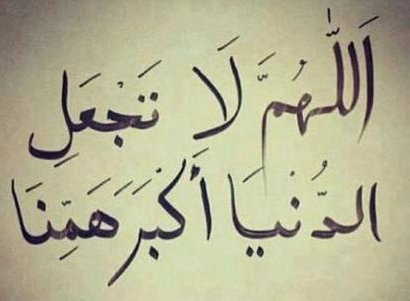 اَللّٰهُمَّ لَا تَجْعَلِ
الدُّنْيَا أَكْبَرَ هَمِّنَا